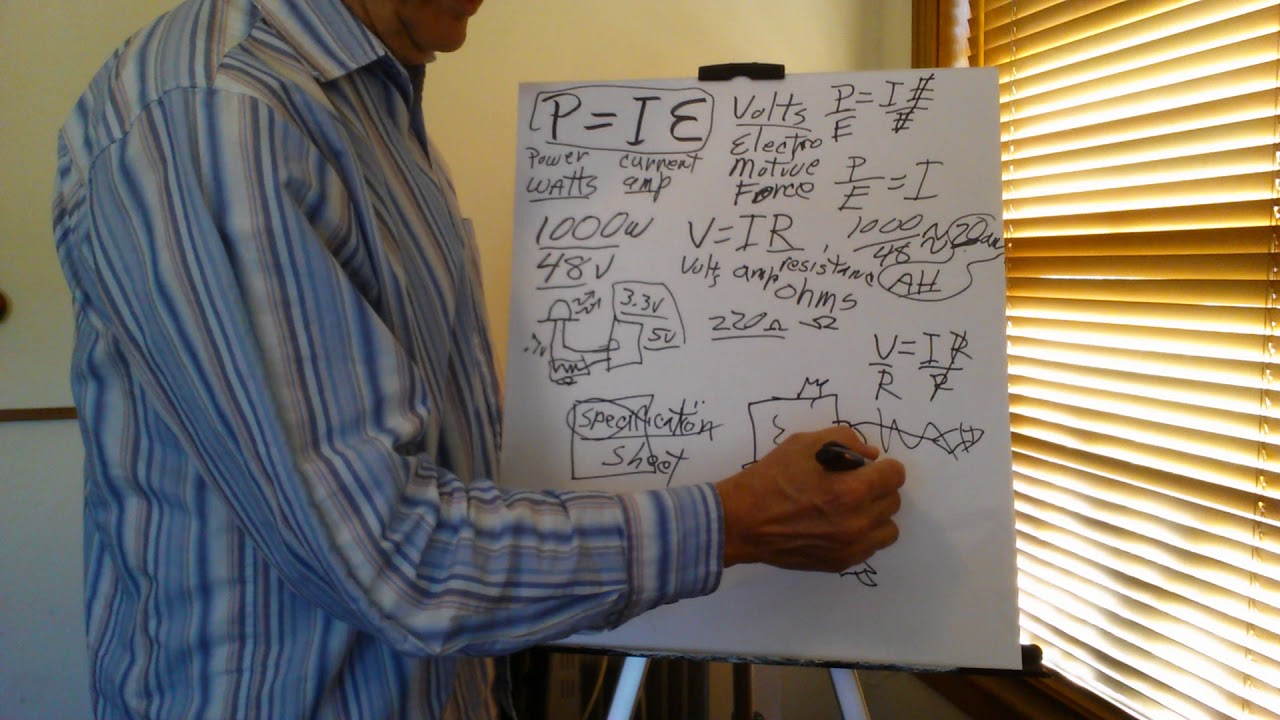 P = I E
Power current
watts amp
Volts
Electro
Motive
Force
P/E = I E/E
P/E = I
1000w
48V
V = IR
Volts amp resistance
ohms
1000/48 ≈ 20am
AH
3.3V
5V
.7V
220Ω Ω
V/R = I R/R
Specification
Sheet